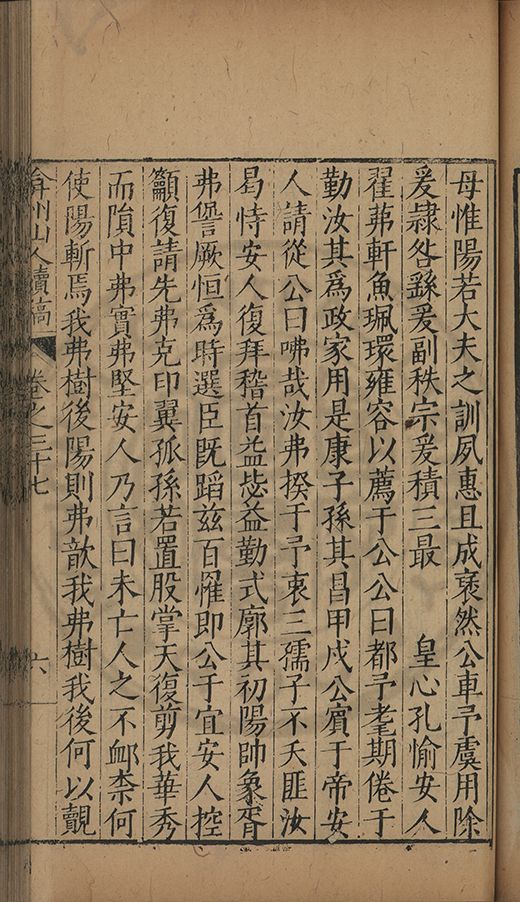 母惟陽若大夫之訓夙惠且成裦然公車予虞用除
爰隷咎繇爰副秩宗爰積三最　皇心孔愉安人
翟茀軒魚珮環雍容以薦于公公曰都予耄期倦于
勤汝其爲政家用是康子孫其昌甲戌公賓于帝安
人請從公曰咈哉汝弗揆于予衷三孺子不天匪汝
曷恃安人復拜稽首益毖益勤式廓其初陽帥象胥
弗諐厥恒爲時選臣旣蹈兹百罹卽公于宜安人控
籲復請先弗克印翼孤孫若置股掌天復剪我華秀
而隕中弗實弗堅安人乃言曰未亡人之不卹柰何
使陽斬焉我弗樹後陽則弗歆我弗樹我後何以覿
弇州山人續稿
卷之三十七
六